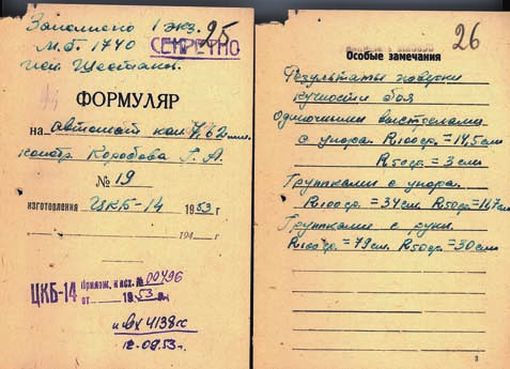 Заполнено 1 экз.
М.б. 1740
исп. Шестак
25
СЕКРЕТНО
ФОРМУЛЯР
на автомат кал 7,62 мм.
констр. Коробова Г. А.
№ 19
изготовления ЦКБ-14 1953 г
194 г
ЦКБ-14 Прилож. к исх. № 00496
от 1953 г.
и вх 4138с
12-09.53г.
26
Особые замечания
Результаты поверки
кучности боя
Одиночными выстрелами
с упора. R100ср. = 14,5 см
R50ср. = 3 см
Группками с упора.
R100ср. = 34 см R50ср. = 14,7 см
Группками с руки.
R100ср. = 79 см. R50ср. = 30 см
3